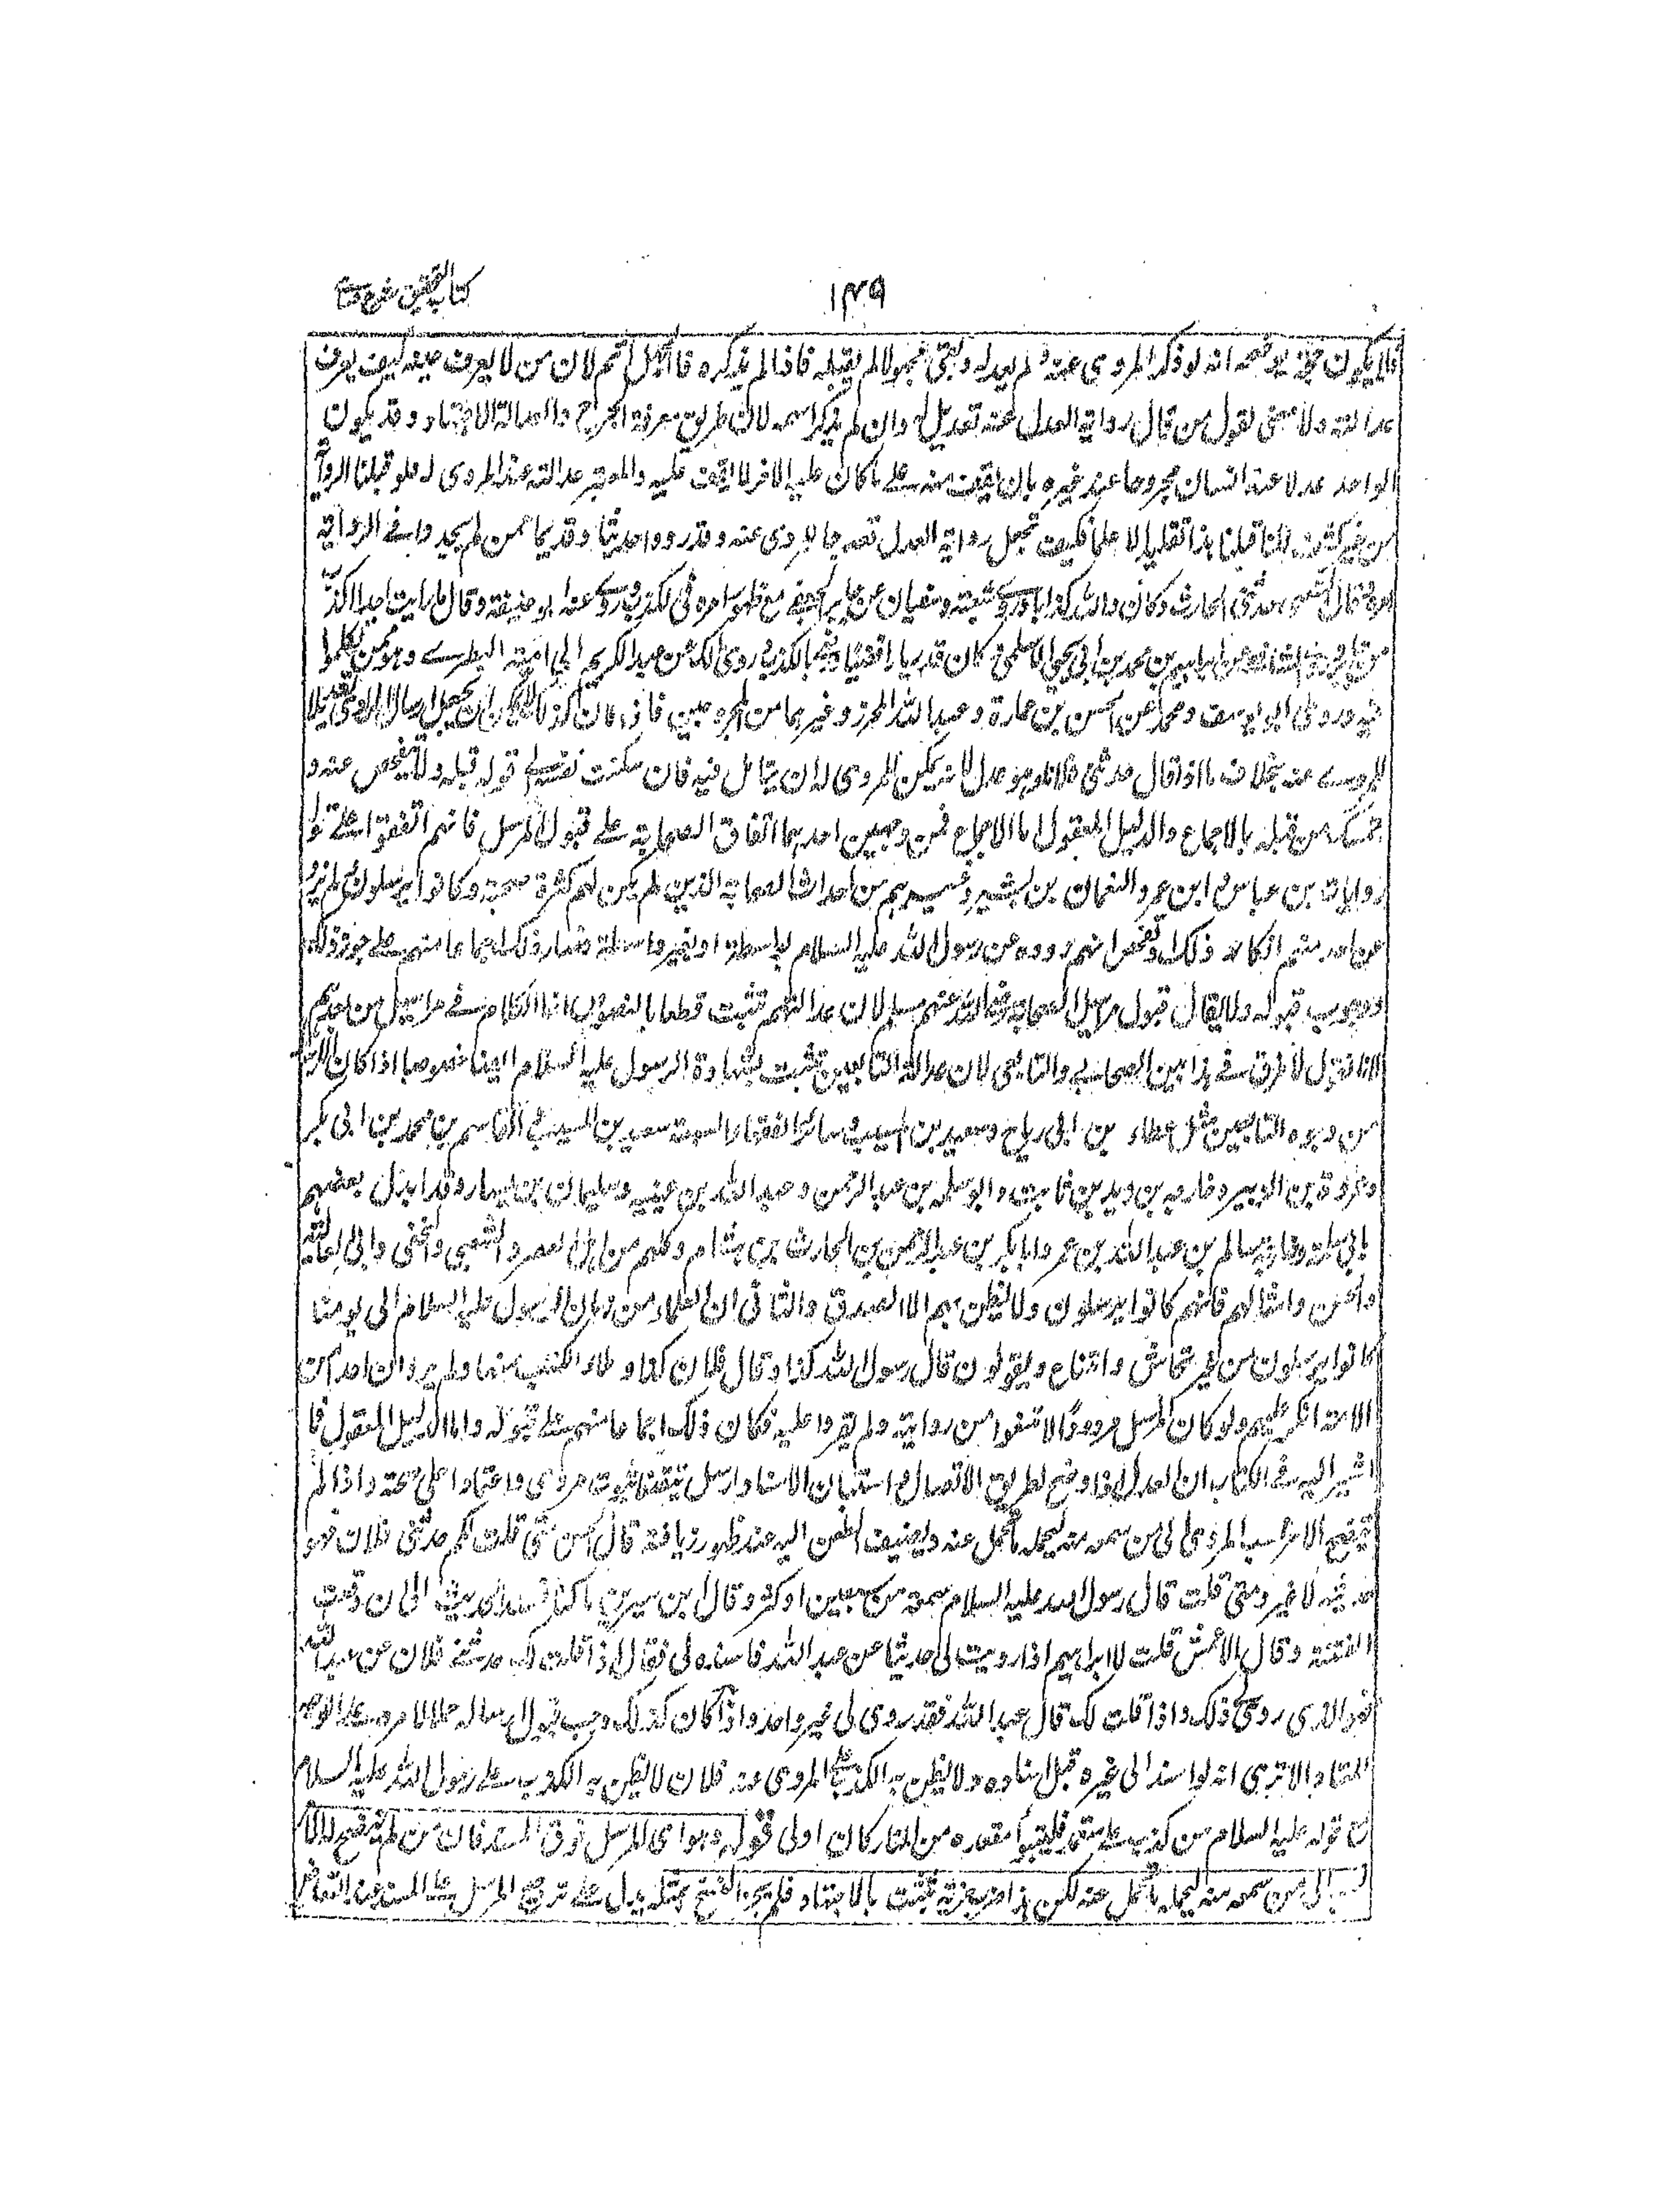 ١٤٩
كتاب التحقيق شرح
فلا يكون حجة يوضحه انه لو ذكر المروى عنه ولم يعدله وبقى مجهولا لم يقبله فاذا لم يذكره فالجهل اتم لان من لا يعرف عينه كيف يعرف
عدالته ولا معنى لقول من قال رواية العدل عنه تعديل وان لم يذكر اسمه لان طريق معرفة الجرح والعدالة الاجتهاد وقد يكون
الواحد عدلا عند انسان مجروحا عند غيره بان يقف منه على ما كان عليه الاخر لا يقف عليه والمعتبر عدالته عند المروى له فلو قبلنا الرواية
من غير كشف لكنا قبلنا هذا تقليدا لا علما فكيف تجعل رواية العدل تعديلا للمروى عنه وقد رووا حديثا وقديما عمن لم يحمدوا فى الرواية
فقال الشعبى حدثنى الحارث وكان والله كذابا وروى شعبة وسفيان عن جابر الجعفى مع ظهور امره فى الكذب وروى عنه ابو حنيفة وقال ما رايت احدا اكذب
من جابر وروى الشافعى عن ابراهيم بن محمد بن ابى يحيى الاسلمى وكان قدريا رافضيا بالكذب وروى مالك عن عبد الكريم ابى امية البصرى وهو ممن تكلموا
فيه وروى ابو يوسف ومحمد عن الحسن بن عمارة وعبد الله المحرر وغيرهما من المجروحين فاذا كان كذلك لا يمكن ان يجعل ارسال الراوى تعديلا
للمروى عنه بخلاف ما اذا قال حدثنى فلان وهو عدل لانه يمكن المروى له ان يتامل فيه فان سكنت نفسه الى قوله قبله ولا يتفحص عنه و
تمسك من قبله بالاجماع والدليل المعقول اما الاجماع فمن وجهين احدهما اتفاق الصحابة على قبول المرسل فانهم اتفقوا على قبول
روايات بن عباس وابن عمر والنعمان بن بشير وغيرهم من احداث الصحابة الذين لم يكن لهم كثرة صحبة وكانوا يرسلون ولم يرو
عن احد منهم انكار ذلك وتفحص انهم رووه عن رسول الله عليه السلام بواسطة او بغير واسطة فصار ذلك اجماعا منهم على جواز ذلك
ووجوب قبوله ولا يقال قبول مراسيل الصحابة رضى الله عنهم مسلم لان عدالتهم تثبت قطعا بالنصوص انما الكلام فى مراسيل من بعدهم
لانا نقول لا فرق فى هذا بين الصحابى والتابعى لان عدالة التابعين تثبت بشهادة الرسول عليه السلام ايضا خصوصا اذا كان الارسال
من وجوه التابعين مثل عطاء بن ابى رباح وسعيد بن المسيب وسائر الفقهاء السبعة سعيد بن المسيب والقاسم بن محمد بن ابى بكر
وعروة بن الزبير وخارجه بن زيد بن ثابت وابو سلمه بن عبد الرحمن وعبيد الله بن عتبة وسليمان بن يسار وقد ابدل بعضهم
بابى سلمة وخارجه سالم بن عبد الله بن عمر وابا بكر بن عبد الرحمن بن الحارث بن هشام وكلهم من اهل العصر والشعبى والنخعى وابى العالية
والحسن وامثالهم فانهم كانوا يرسلون ولا يظن بهم الا الصدق والثانى ان العلماء من زمان الرسول عليه السلام الى يومنا
كانوا يرسلون من غير تحاش وامتناع ويقولون قال رسول الله كذا وقال فلان كذا وملاء الكتب منها ولم يرو ان احدا من
الامة انكر عليهم ولو كان المرسل مردودا لامتنعوا من روايته ولم يقروا عليه فكان ذلك اجماعا منهم على قبوله واما الدليل المعقول فما
اشير اليه فى الكتاب ان العدل اذا وضح له طريق الاتصال واستبان الاسناد ارسل تيقنا بثبوت مروى واعتمادا على صحته واذا لم
يتضح الامر نسب المروى الى من سمعه منه ليحمله ما تحمل عنه ويضيف الطعن اليه عند ظهور زيافة قال الحسن متى قلت لكم حدثنى فلان فهو
حديثه لا غير ومتى قلت قال رسول الله عليه السلام سمعته من سبعين او اكثر وقال بن سيرين ما كنا نسند الحديث الى ان وقعت
الفتنة وقال الاعمش قلت لابراهيم اذا رويت لى حديثا عن عبد الله فاسنده لى فقال اذا قلت لك حدثنى فلان عن عبد الله
فهو الذى روى لى ذلك واذا قلت لك قال عبد الله فقد روى لى غير واحد واذا كان كذلك وجب قبول ارساله حملا لامره على الوجه
المعتاد الا ترى انه لو اسند الى غيره قبل اسناده ولا يظن به الكذب على المروى عنه فلان لا يظن به الكذب على رسول الله عليه السلام
مع قوله عليه السلام من كذب على متعمدا فليتبوأ مقعده من النار كان اولى قوله وهو اى المرسل فوق المسند فان من لم يتضح له الامر
نسبه الى من سمعه منه ليحمله ما تحمل عنه لكن هذا ضرب مزية تثبت بالاجتهاد فلم يجز النسخ بمثله يدل على ترجيح المرسل على المسند عند التعارض